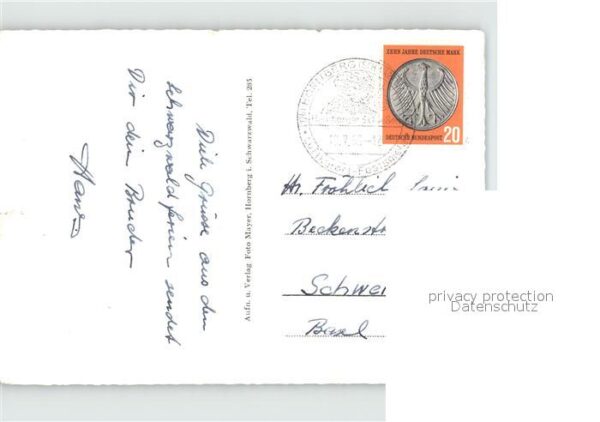 Viele Grüsse aus den
Schwarzwaldferien sendet
Dir dein Bruder
Hans
Aufn. u. Verlag Foto Mayer, Hornberg i. Schwarzwald, Tel. 285
ZEHN JAHRE DEUTSCHE MARK
DEUTSCHE BUNDESPOST
20
Hr. Fröhlich
Schwei
Basel
privacy protection
Datenschutz